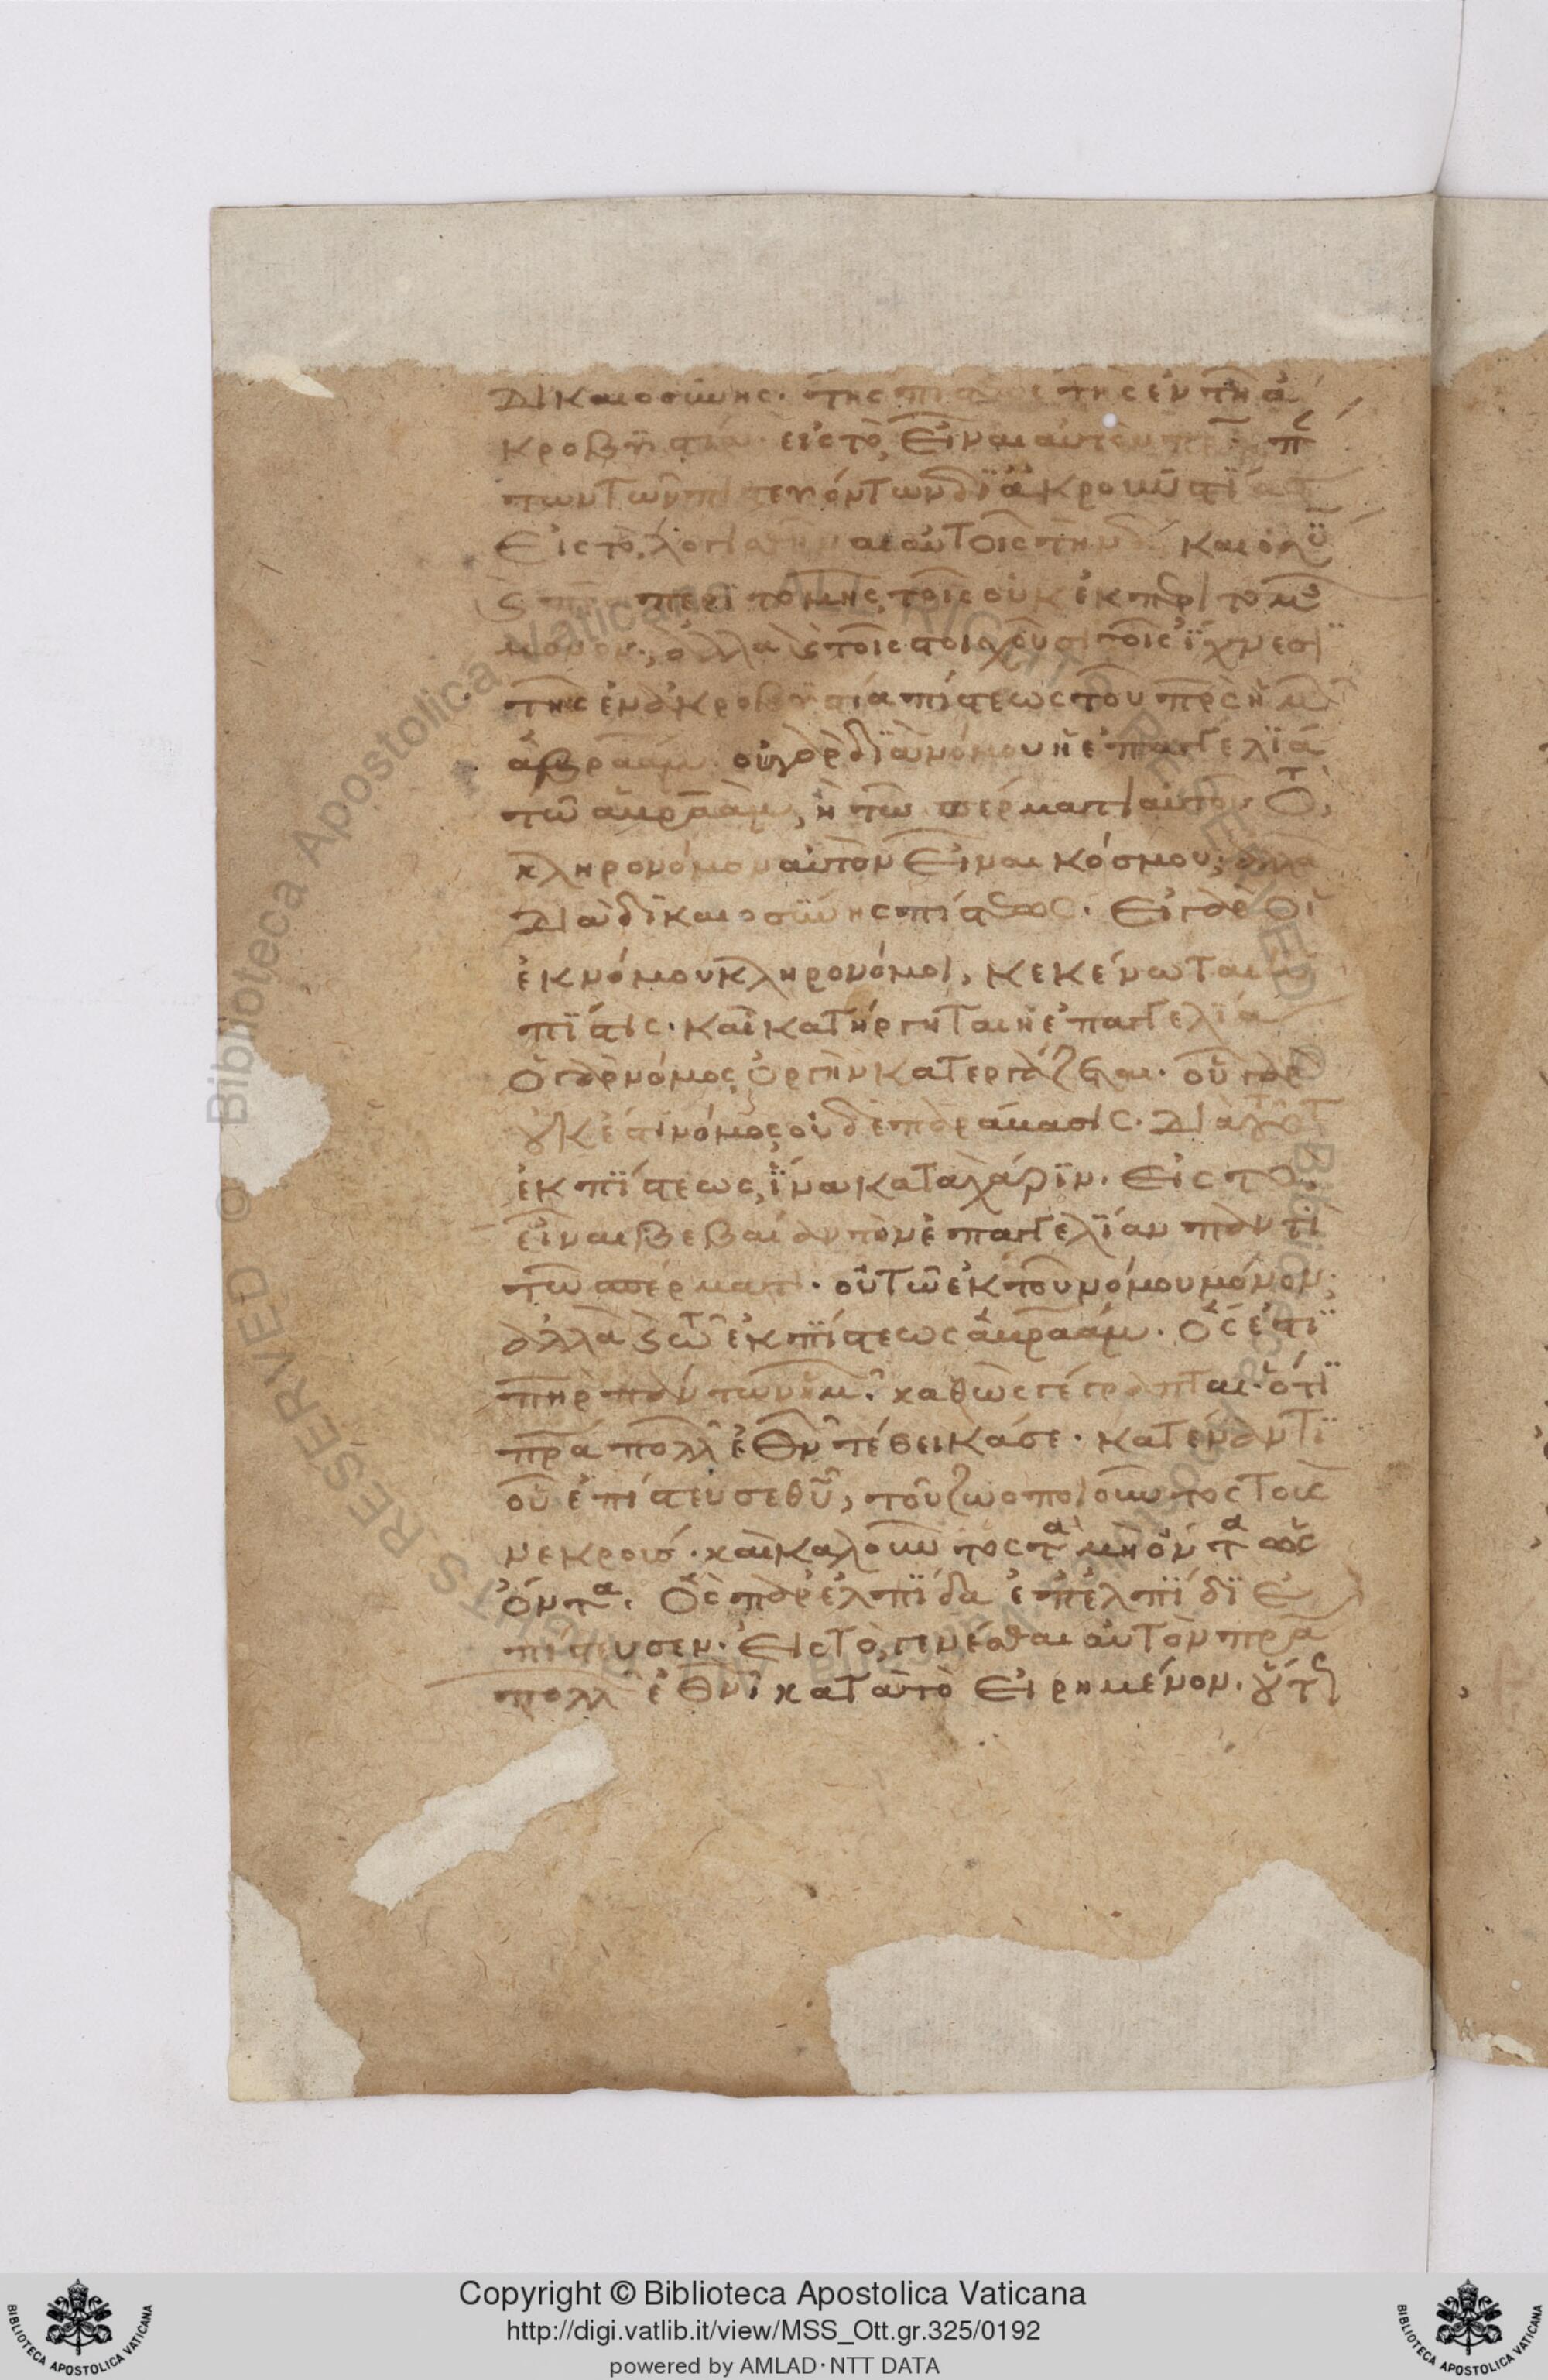 δικαιοσύνης· της πίστεως της ἐν τη ἀ
κροβϋστία· εἰς τὸ, εἶναι αὐτὸν πρ̅α π
των τῶν πιστευόντων δϊ ἀκροβϋστίας
εἰς τὸ, λογισθῆναι αὐτοῖς τὴν δικαιοσϋ
περϊτομης, τοῖς οὐκ ἐκ περιτομ
μόνον, ἀλλὰ ϛ τοῖς στοιχοῦσι τοῖς ἴχνεσϊ
της ἐν ἀκροβϋστία πίστεως του πρ̅ς ἡμ
ἀβραάμ. οὐ γὰρ δϊὰ νόμου ἡ ἐπαγγελϊά
τῶ ἀβραὰμ, ἢ τῶ σπέρματι αὐτου ὁ
κληρονόμον αὐτὸν εἶναι κόσμου, ἀλλὰ
διὰ δϊκαιοσύνης πίστεως. εἰ γὰρ οἱ
ἐκ νόμου κληρονόμοι, κεκένωται ἡ
πϊστις· καὶ κατήργηται ἡ ἐπαγγελϊα
ὁ γὰρ νόμος ὀργὴν κατεργάζεται. οὗ γὰρ
ȣκ ἐστι νόμος, οὐδὲ παράβασις. διὰ τȣτ
ἐκ πίστεως, ἵνα κατὰ χάρϊν. εἰς τὸ,
εἶναι βεβαίαν τὸν ἐπαγγελίαν παντὶ
τῶ σπέρματι. οὐ τῶ ἐκ του νόμου μόνον,
ἀλλὰ ϛ τῶ ἐκ πίστεως ἀβραάμ. ὅς ἐστϊ
πηρ πάντων ἡμ· καθὼς γέγραπται· ὅτϊ
πρ̅α πολλ ἐθν τέθεικά σε· κατέναντϊ
οὗ ἐπίστευσε θῦ, τοῦ ζωοποιοῦντος τοὺς
νεκροὺσ· καὶ καλοῦντος τὰ μὴ ὄντα ὡς
ὄντα. ὃς παρ ἐλπίδα ἐπ ἐλπίδϊ ἐ
πίστευσεν. εἰς τὸ, γενέσθαι αὐτὸν πρ̅α
πολλ ἐθν κατὰ τὸ εἰρημένον. ȣ́τς